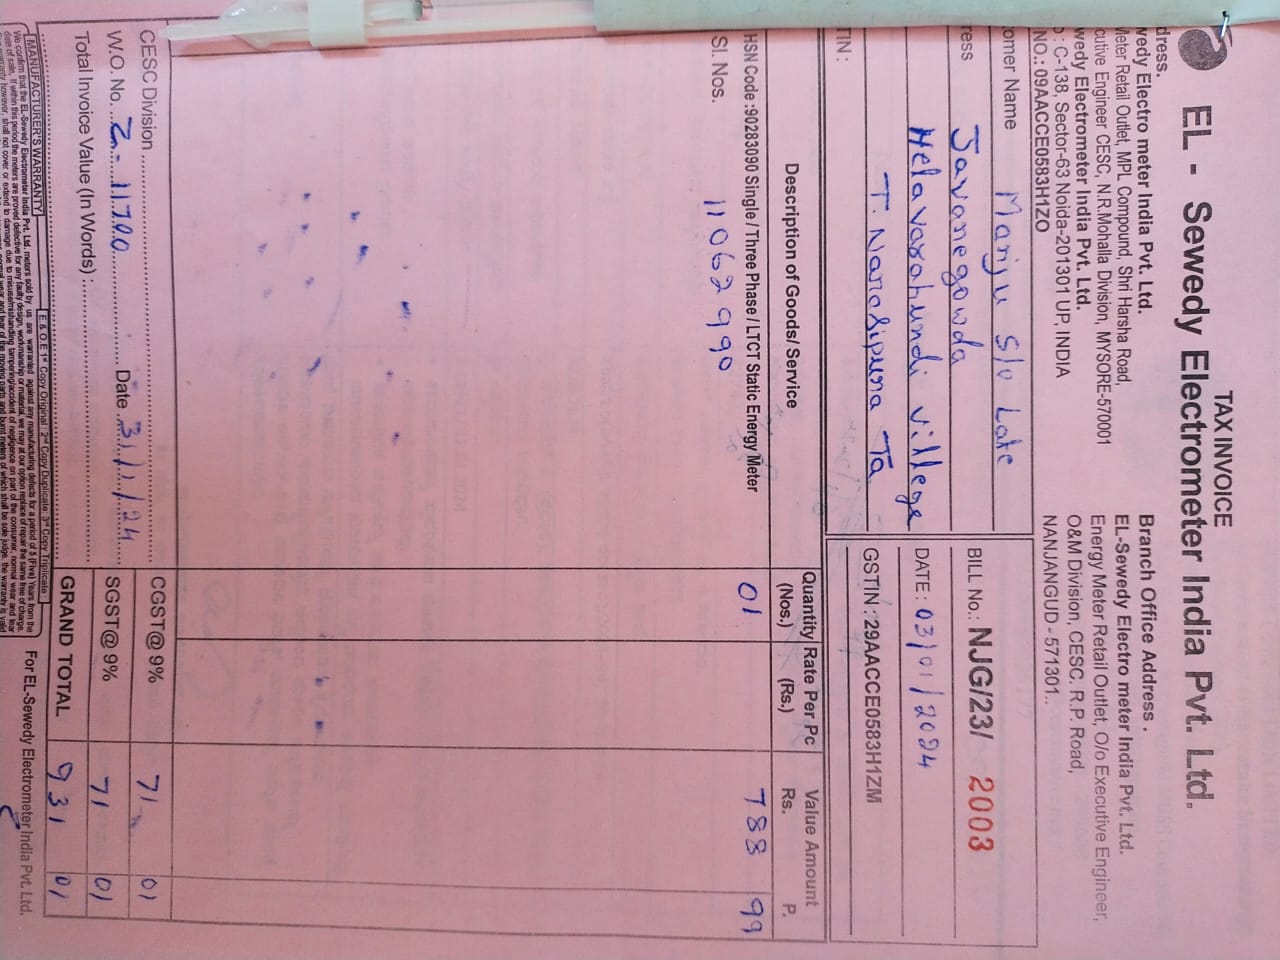 TAX INVOICE
EL - Sewedy Electrometer India Pvt. Ltd.
dress.
wedy Electro meter India Pvt. Ltd.
Meter Retail Outlet, MPL Compound, Shri Harsha Road,
cutive Engineer CESC, N.R.Mohalla Division, MYSORE-570001
wedy Electrometer India Pvt. Ltd.
: C-138, Sector-63 Noida-201301 UP, INDIA
NO.: 09AACCE0583H1ZO
Branch Office Address .
EL-Sewedy Electro meter India Pvt. Ltd.
Energy Meter Retail Outlet, O/o Executive Engineer,
O&M Division, CESC. R.P. Road,
NANJANGUD - 571301..
omer Name Manju S/o Late
ress Javanegowda
Helavarahundi villege
T. Narasipura Ta
TIN :
BILL No.: NJG/23/ 2003
DATE : 03/01/2024
GSTIN : 29AACCE0583H1ZM
Description of Goods/ Service Quantity (Nos.) Rate Per Pc (Rs.) Value Amount Rs. P.
HSN Code :90283090 Single / Three Phase / LTCT Static Energy Meter 01 788 99
Sl. Nos. 11062990
CESC Division CGST@9% 71 01
W.O. No. 2-11700 Date 31/1/24 SGST@9% 71 01
Total Invoice Value (In Words) : GRAND TOTAL 931 01
E & O E 1st Copy Original : 2nd Copy Duplicate: 3rd Copy Triplicate
MANUFACTURER'S WARRANTY
We confirm that the EL-Sewedy Electrometer India Pvt. Ltd. meters sold by us are warranted against any manufacturing defects for a period of 5 (Five) Years from the
date of sale. If within this period the meters are proved defective for any faulty design, workmanship or material, we may at our option replace of repair the same free of charge.
For EL-Sewedy Electrometer India Pvt. Ltd.